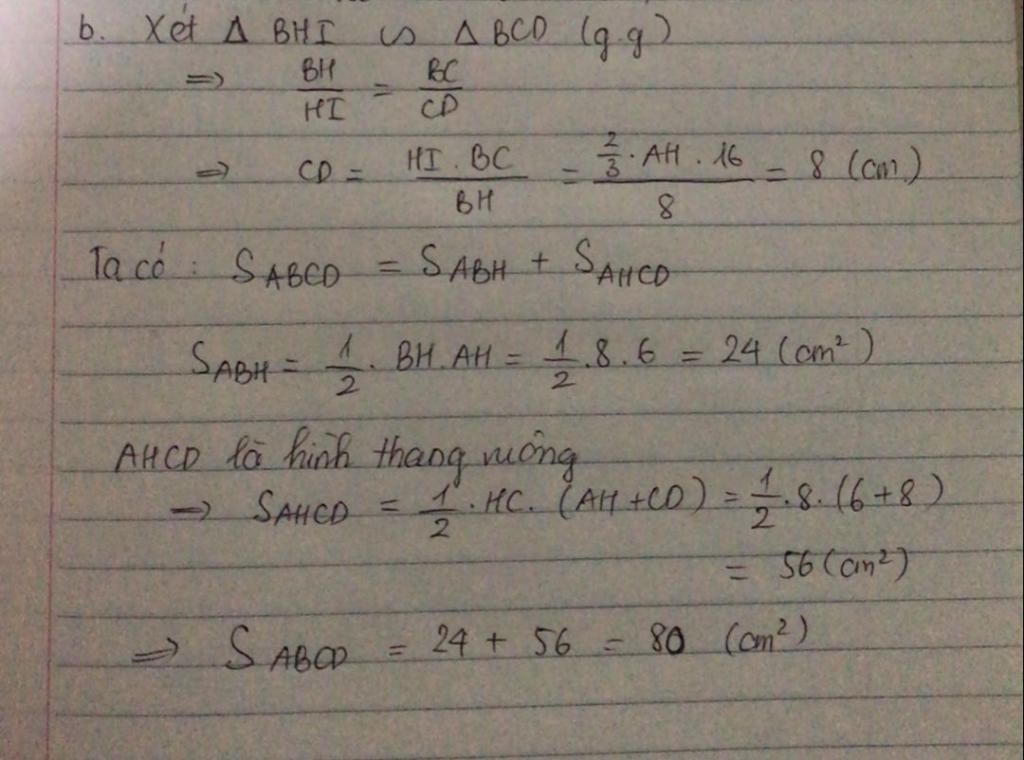 b. Xét Δ BHI ∽ Δ BCD (g.g)
=> BH/HI = BC/CD
=> CD = HI . BC / BH = 2/3 . AH . 16 / 8 = 8 (cm)
Ta có : S ABCD = S ABH + S AHCD
S ABH = 1/2 . BH . AH = 1/2 . 8 . 6 = 24 (cm²)
AHCD là hình thang vuông
=> S AHCD = 1/2 . HC . (AH + CD) = 1/2 . 8 . (6 + 8)
= 56 (cm²)
=> S ABCD = 24 + 56 = 80 (cm²)